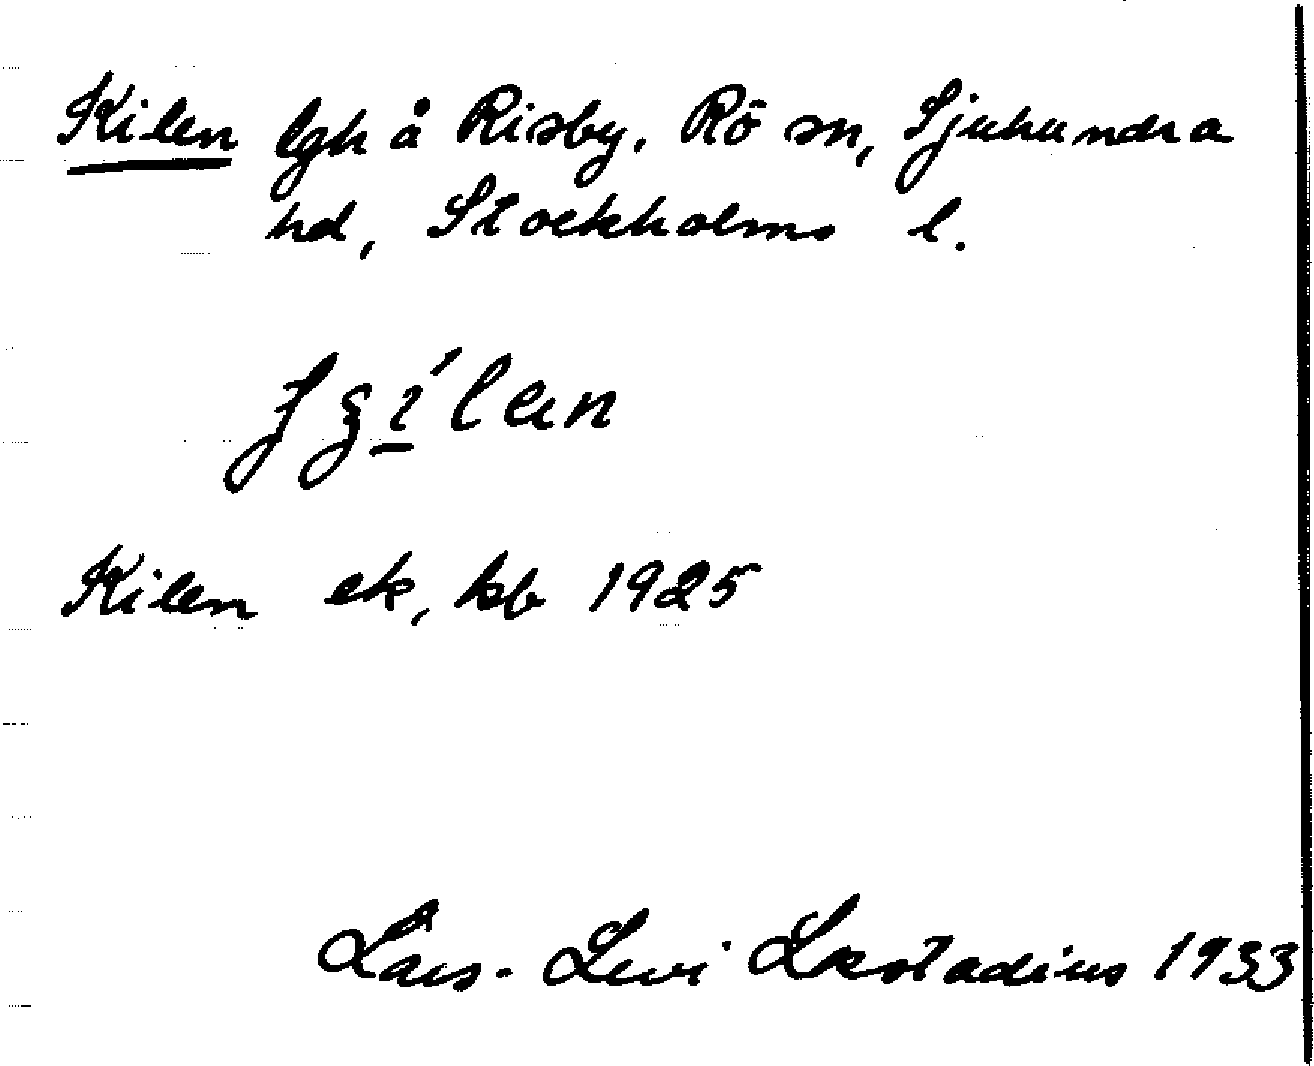 Kilen lgh å Risby, Rö sn, Sjuhundra
hd, Stockholms l.
Kilen ek, kb 1925
Lars-Levi Læstadius 1933